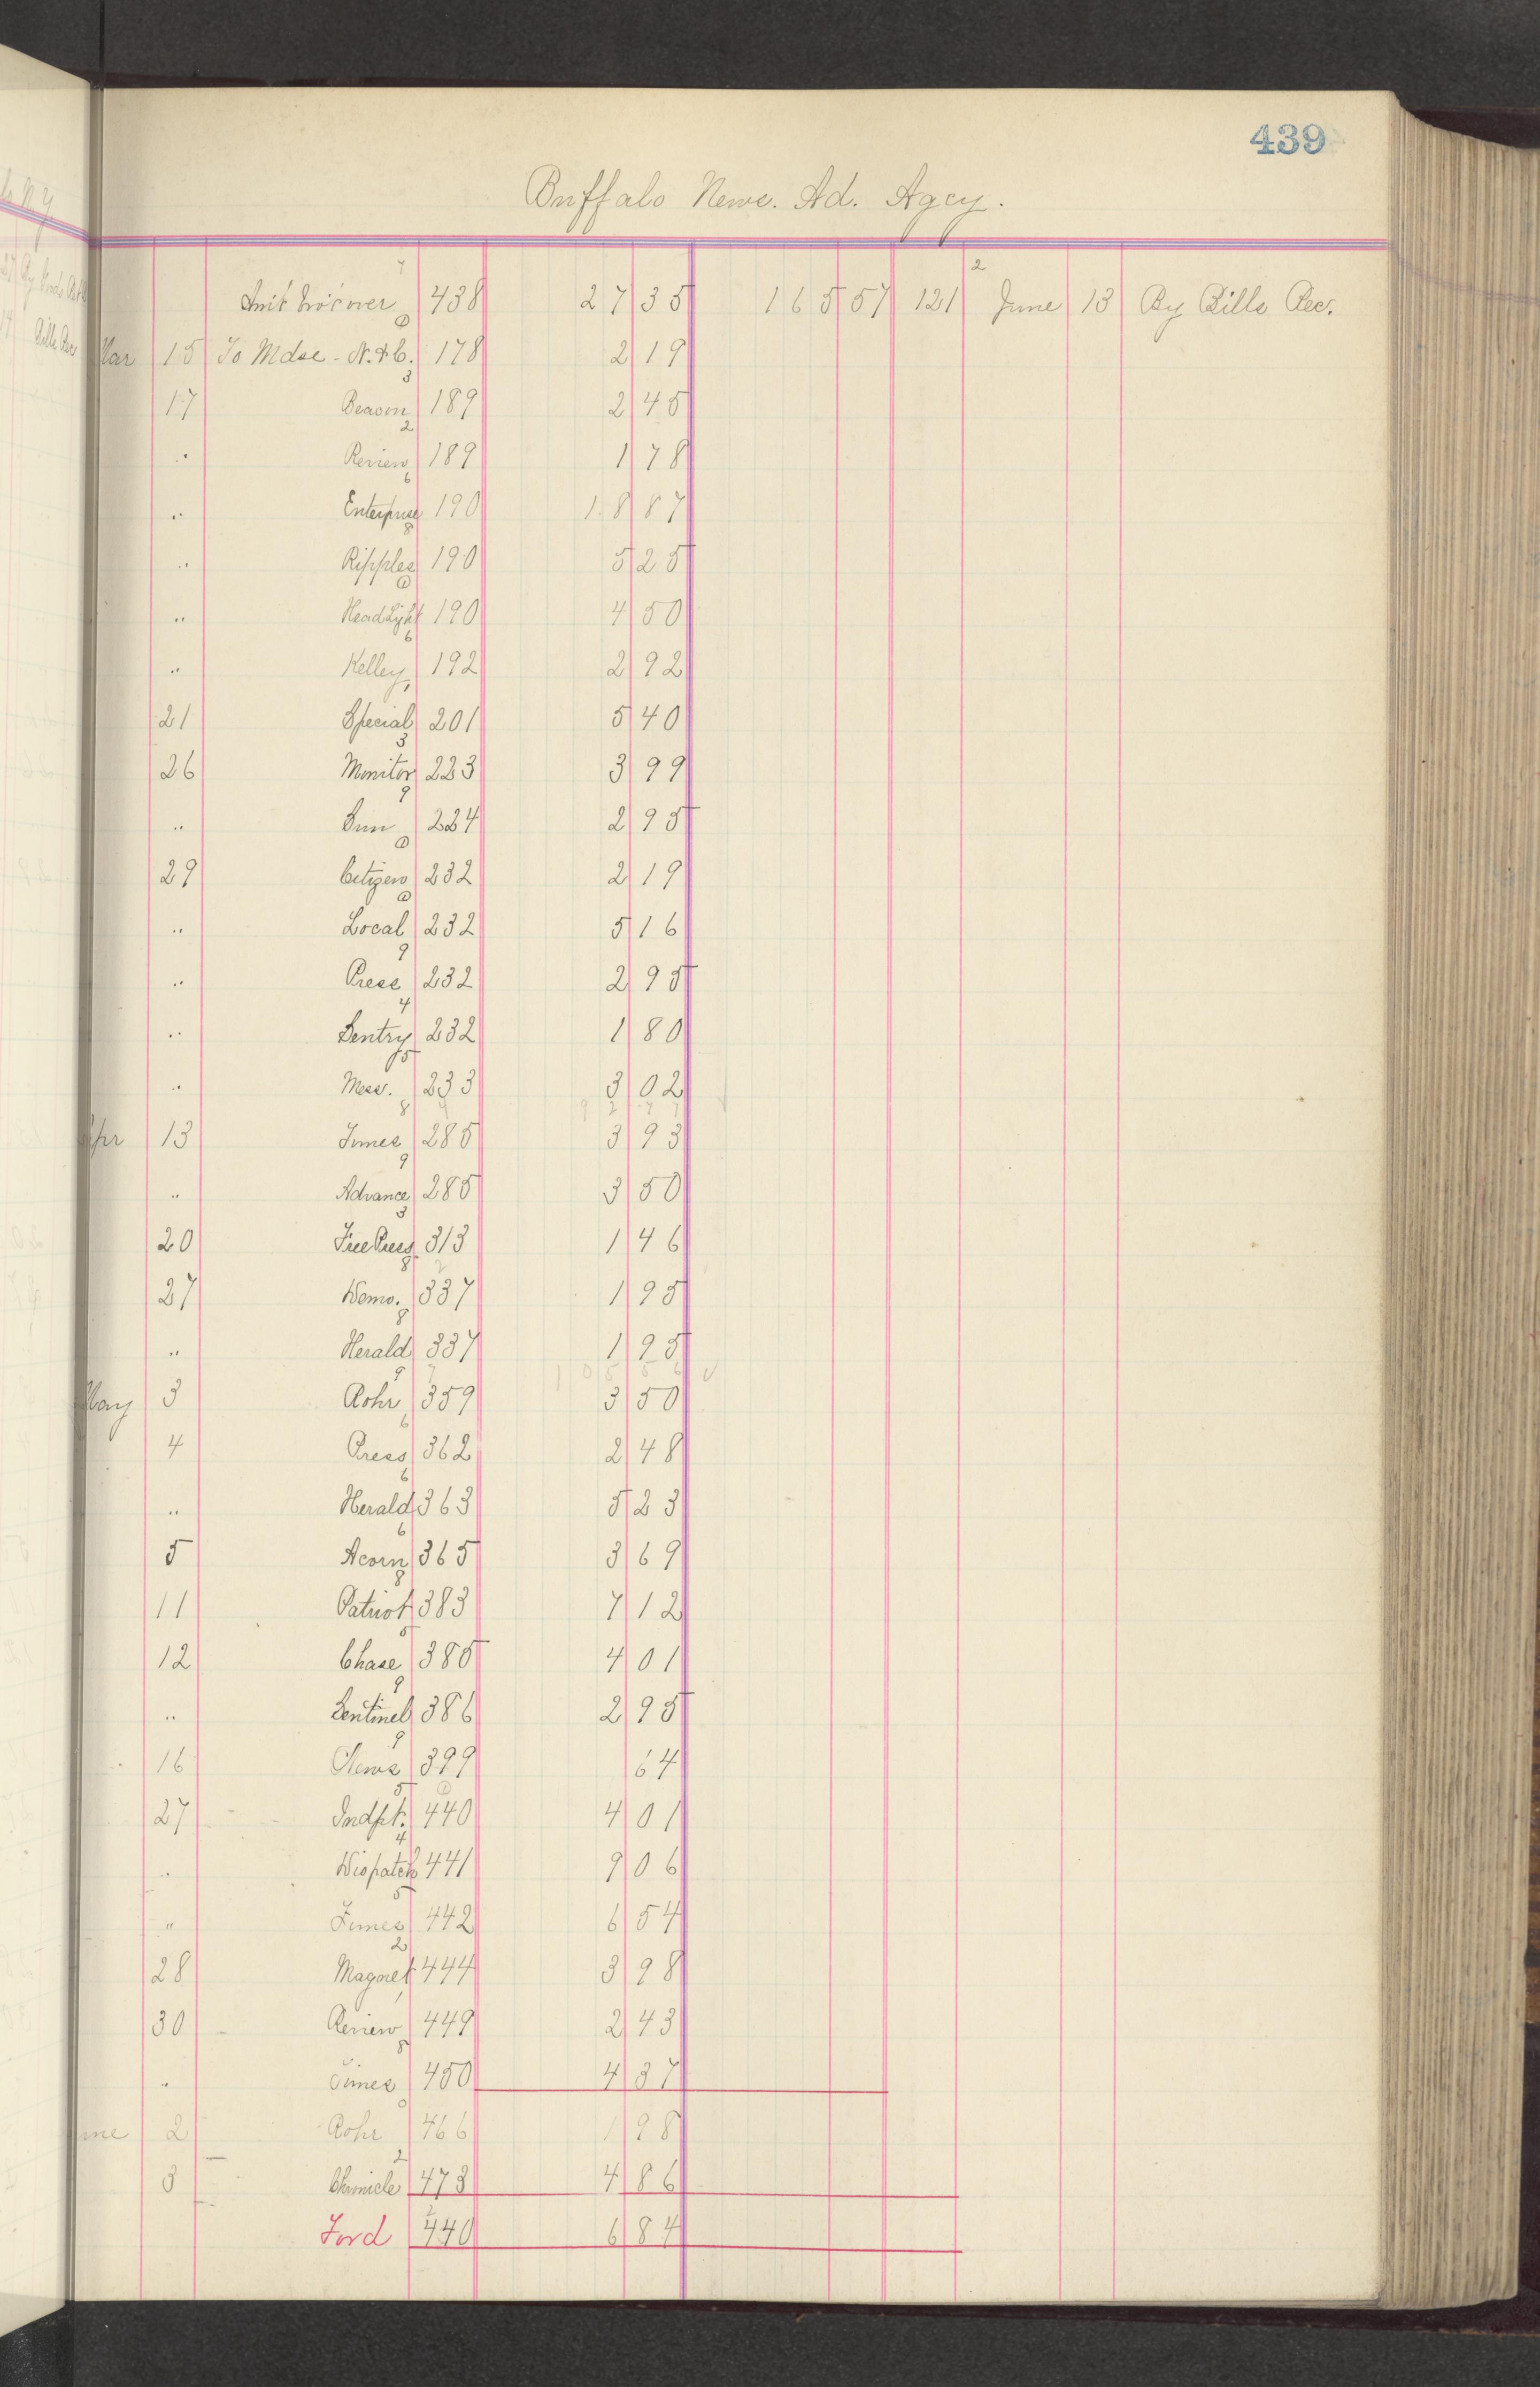 439
Buffalo News. Ad. Agcy.
Amt brot over 438 27 35 165 57 121 June 13 By Bills Rec.
Mar 15 To Mdse - N. & C. 178 2 19
17 Beacon 189 2 45
" Review 189 1 78
" Enterprise 190 18 87
" Ripples 190 5 25
" Headlight 190 4 50
" Kelley 192 2 92
21 Special 201 5 40
26 Monitor 223 3 99
" Sun 224 2 95
29 Citizen 232 2 19
" Local 232 5 16
" Press 232 2 95
" Sentry 232 1 80
" Mess. 233 3 02
Apr 13 Times 285 3 93
" Advance 285 3 50
20 Free Press 313 1 46
27 Demo. 337 1 95
" Herald 337 1 95
May 3 Rohr 359 3 50
4 Press 362 2 48
" Herald 363 5 23
5 Acorn 365 3 69
11 Patriot 383 7 12
12 Chase 385 4 01
" Sentinel 386 2 95
16 News 399 64
27 Indpt. 440 4 01
" Dispatch 441 9 06
" Times 442 6 54
28 Magnet 444 3 98
30 Review 449 2 43
" Times 450 4 37
June 2 Rohr 466 1 98
3 Chronicle 473 4 86
Ford 440 6 84